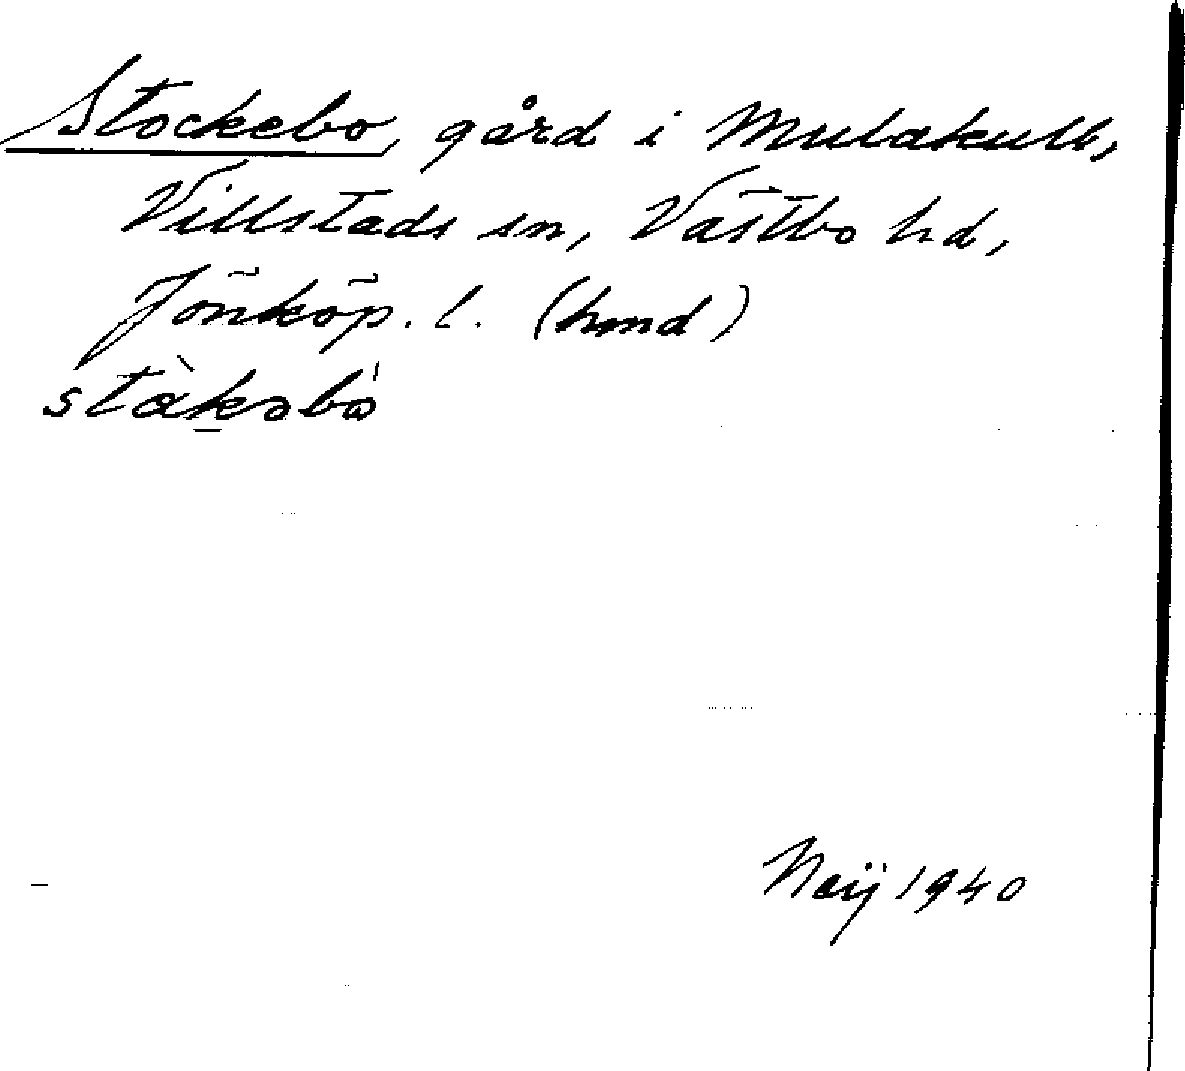 Stockebo, gård i Mulakull,
Villstads sn, Västbo hd,
Jönköp. l. (hmd)
Neij 1940